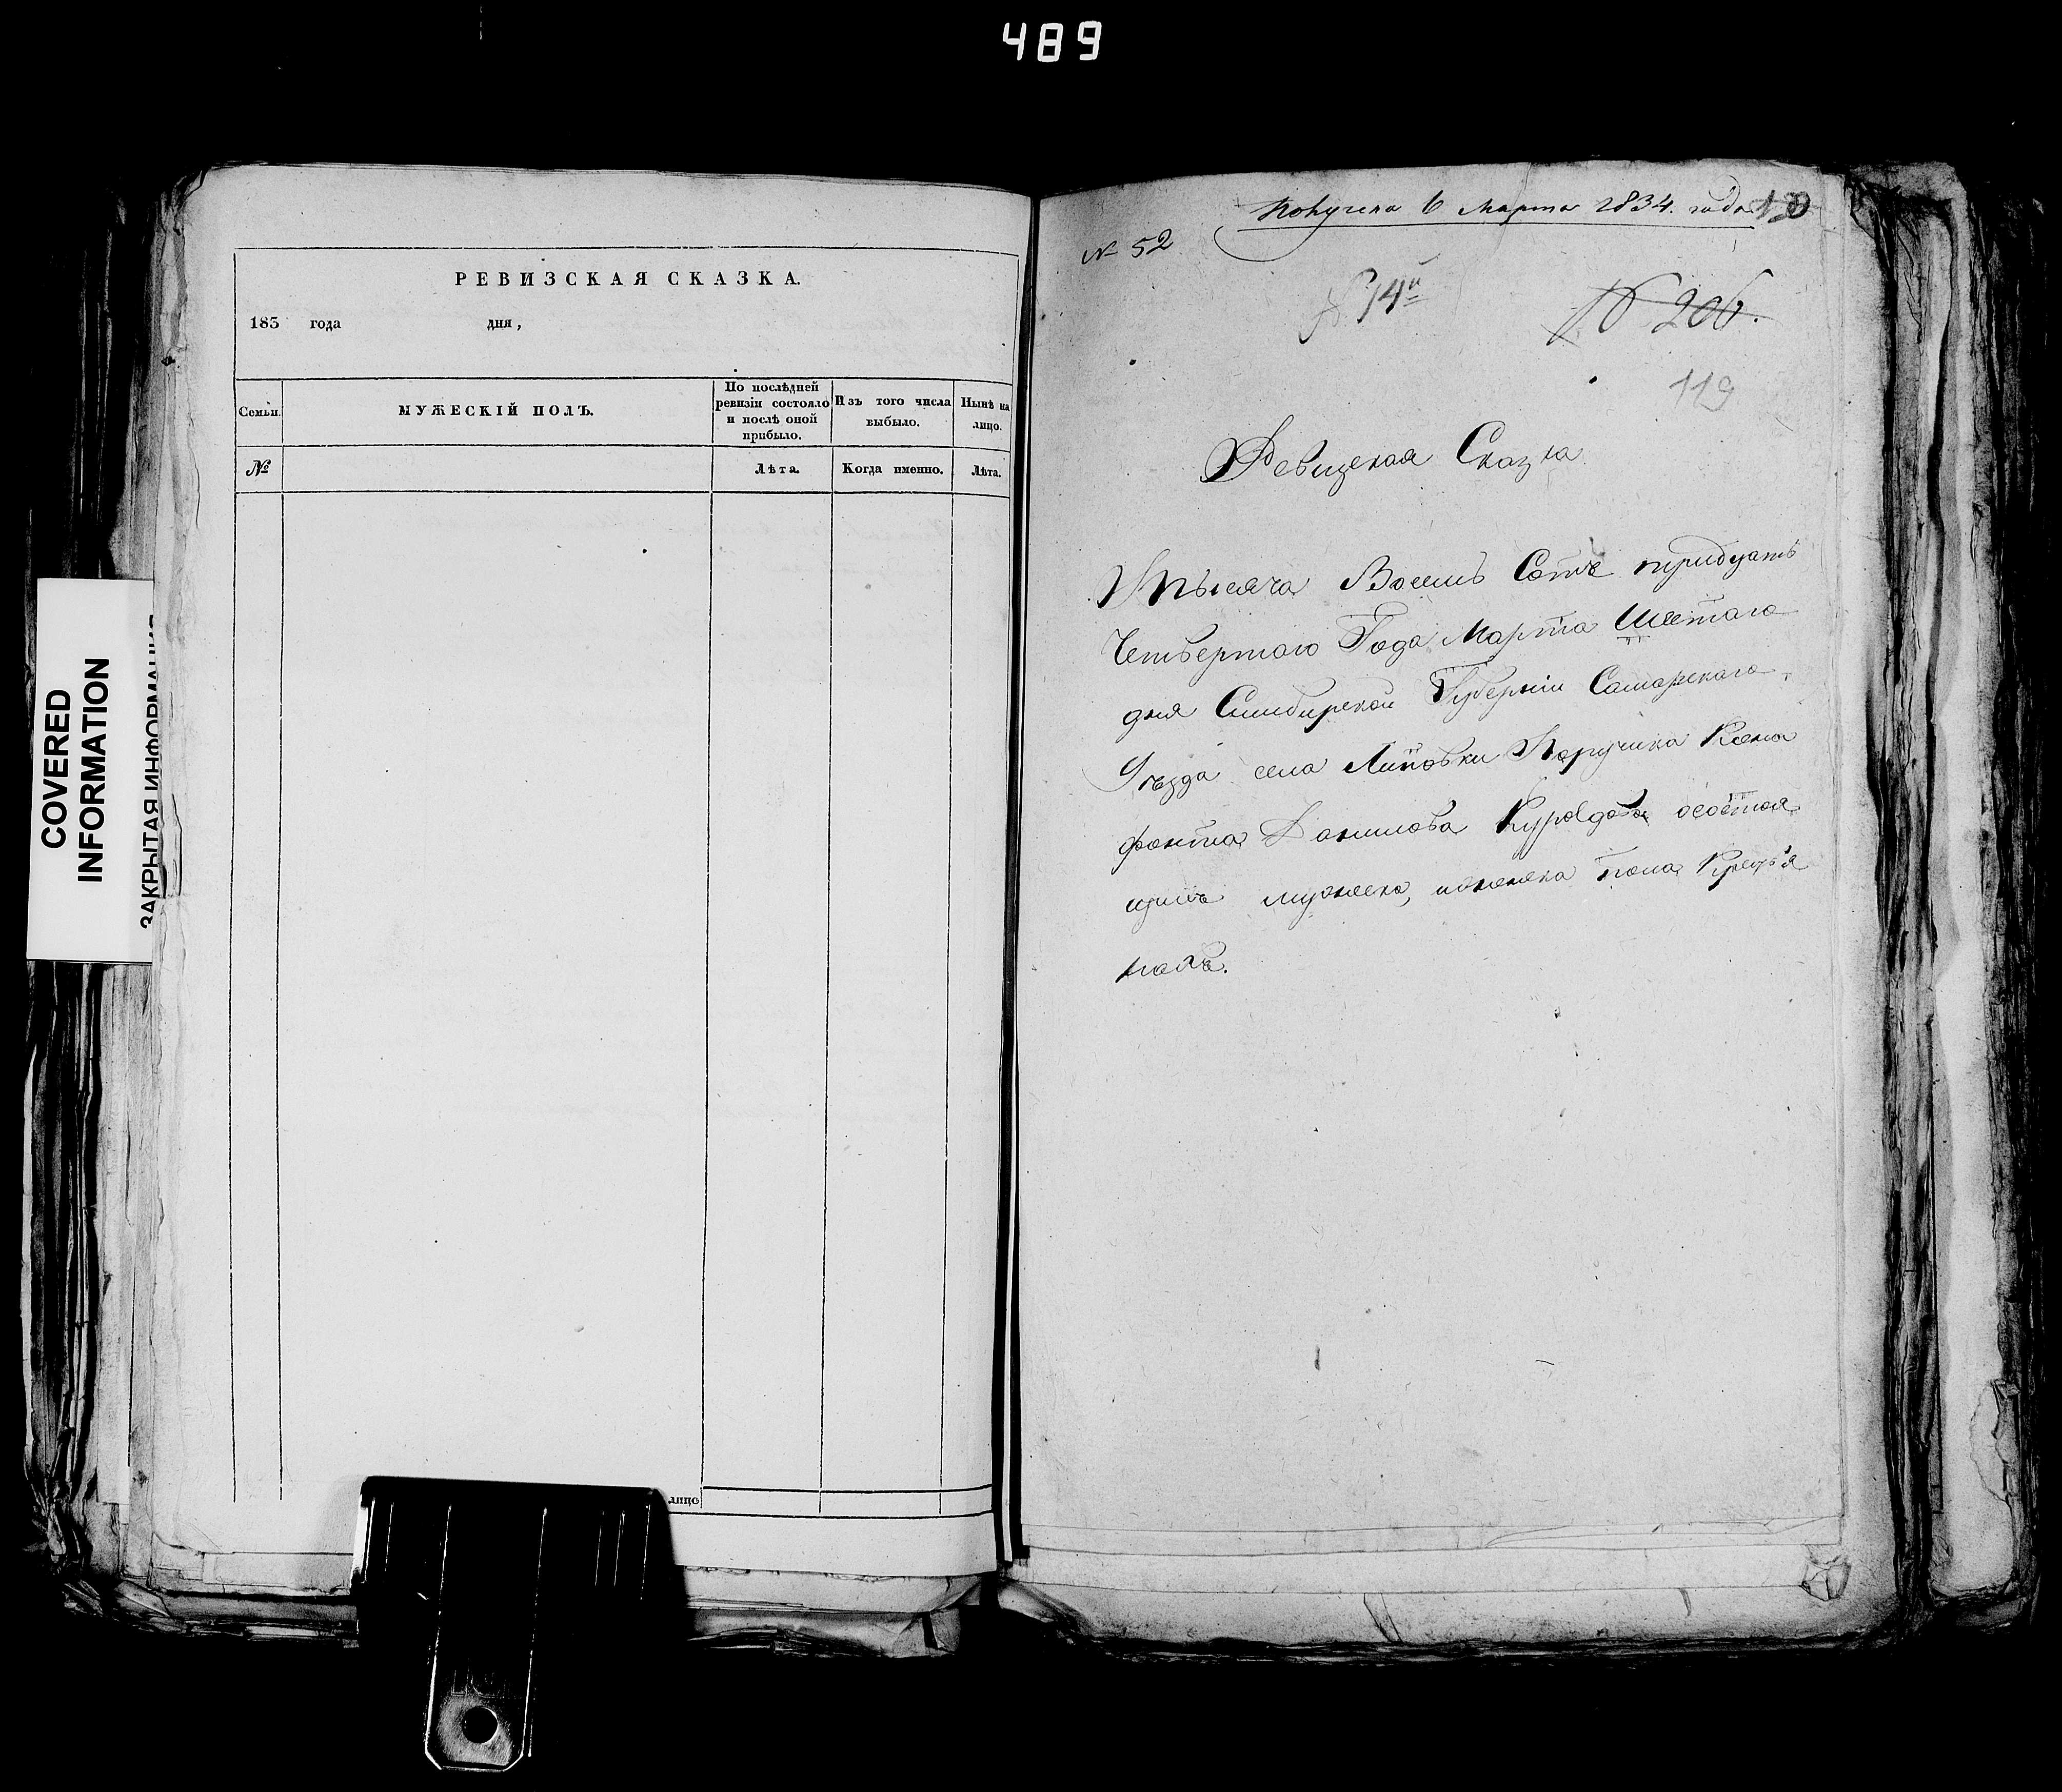 489
РЕВИЗСКАЯ СКАЗКА.
185 года дня,
Семьи.
МУЖЕСКІЙ ПОЛЪ.
По послѣдней
ревизіи состояло
и послѣ оной
прибыло.
Изъ того числа
выбыло.
Нынѣ на
лицо.
№
Лѣта.
Когда именно.
Лѣта.
лицо
COVERED
INFORMATION
ЗАКРЫТАЯ ИНФОРМАЦИЯ
Получена 6 Марта 1834. года
№ 52
14й
206.
119
Ревизская Сказка
Тысяча Восемь Сотъ тридцать
Четвертаго Года Марта Шестаго
дня Симбирской Губерніи Самарскаго
Уѣзда села Липовки Поручика Ксено
фонта Данилова Куроѣдова о состоя
щихъ мужеска, и женска пола Крестья
нахъ.